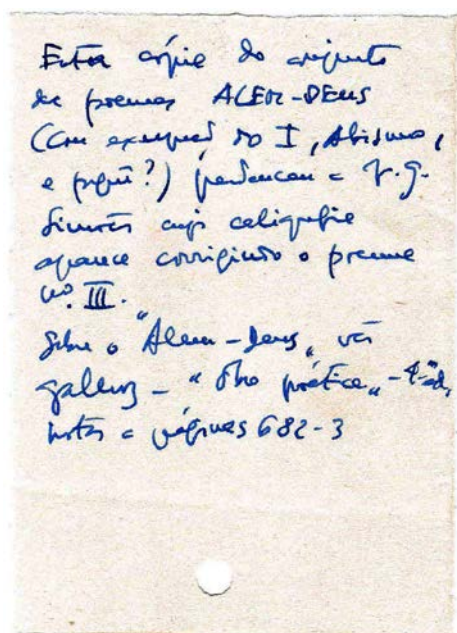 Esta cópia do conjunto
de poemas ALÉM-DEUS
(com excepção do I, Abismo,
e porquê?) pertenceu a J. G.
Simões cuja caligrafia
aparece corrigindo o poema
nº. III.
Sobre o "Além-Deus" vêr
galhoz - "Obra poética" - 4ª ed,
notas a páginas 682-3